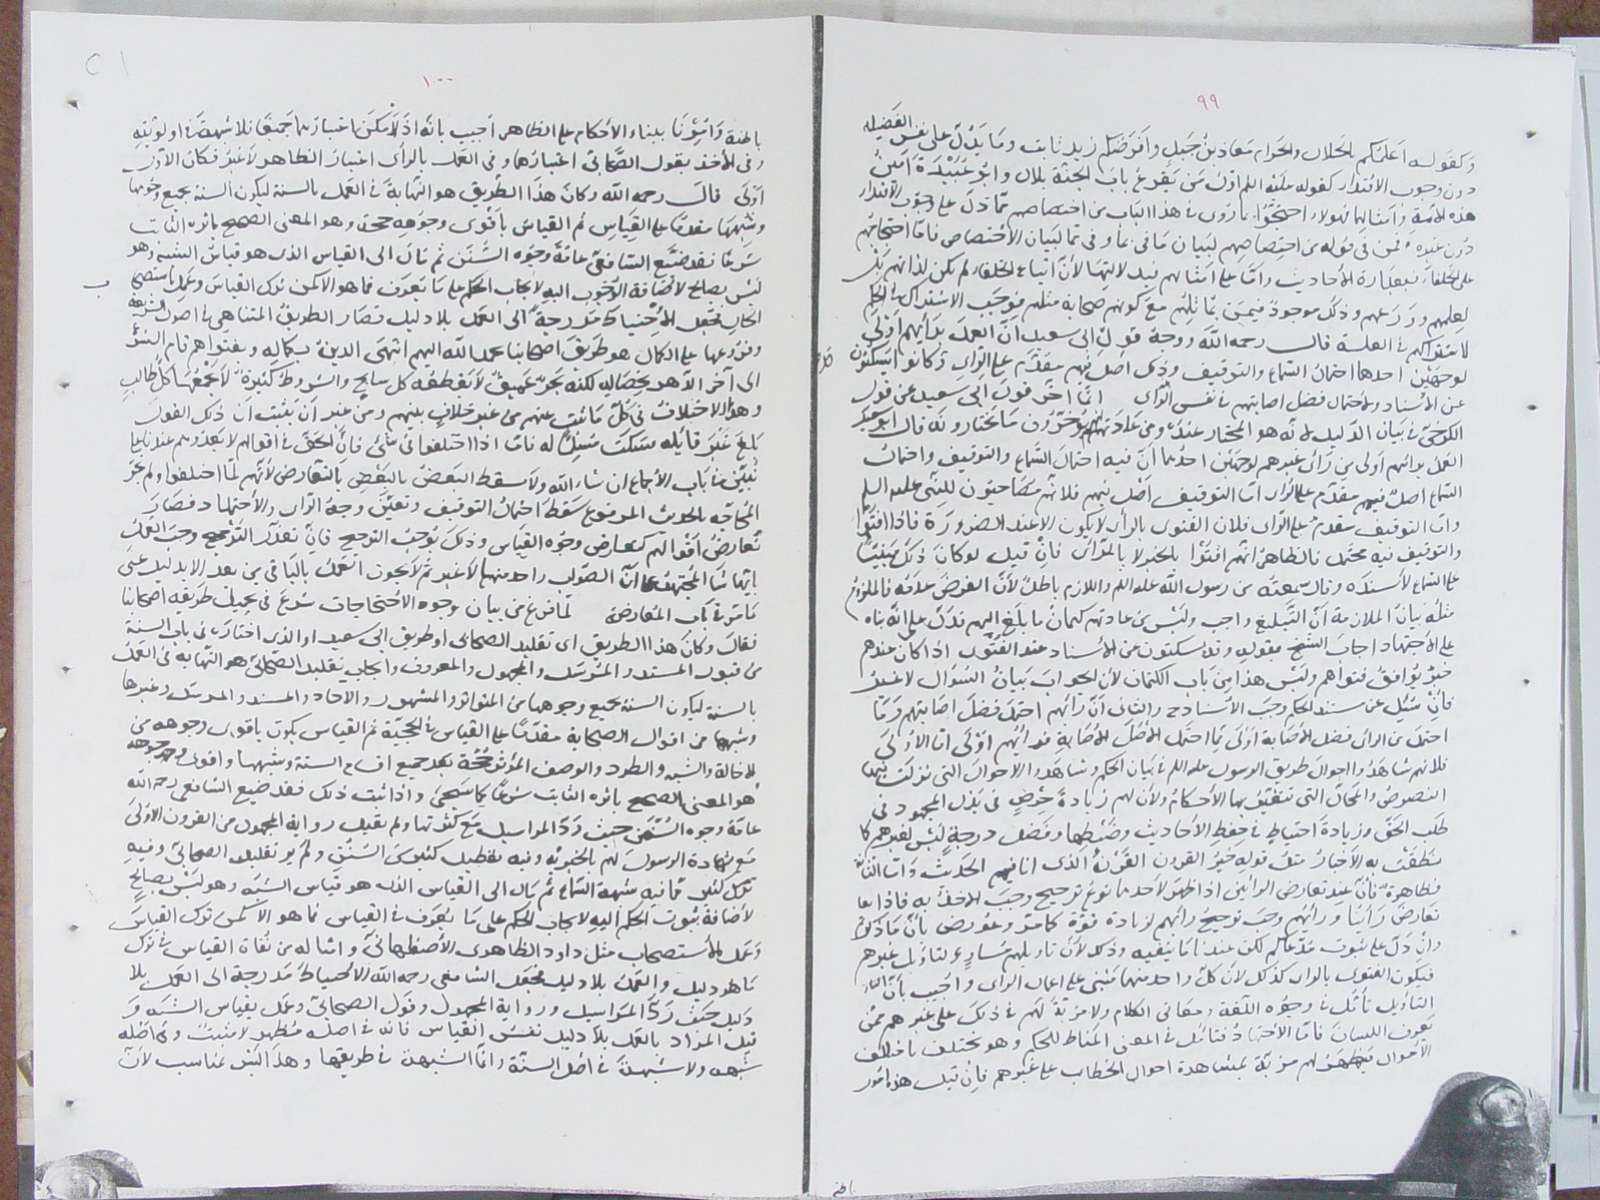 ٩٩
وكقوله اعلمكم بالحلال والحرام معاذ بن جبل وافرضكم زيد بن ثابت وما يدل على نفس الفضيلة
دون وجوب الاقتداء كقوله عليه السلام اول من يقرع باب الجنة بلال وابو عبيدة امين
هذه الامة وامثالها فهؤلاء احتجوا بما روى في هذا الباب من اختصاصهم مما دل على وجوب الاقتداء
على الخلفاء
لعلمهم وورعهم وذلك موجود فيمن مع كونهم صحابة مثلهم فوجب الاشتراك في الحكم
لاشتراكهم في العلة قال رحمه الله ووجه قول ابي سعيد ان العمل برأيهم اولى
لوجهين احدهما احتمال السماع والتوقيف وذلك اصل فيهم مقدم على الرأى وكانوا يسكتون
عن الاسناد ولاحتمال فضل اصابتهم في نفس الرأى انما اخر قول ابي سعيد عن قول
الكرخي في بيان الدليل لانه هو المختار عنده ومن عادتهم انهم يؤخرون ما يختارونه قال ابو سعيد
العمل برأيهم اولى من رأى غيرهم لوجهين احدهما ان فيه احتمال السماع والتوقيف واحتمال
السماع اصل فيهم مقدم على الرأى اما التوقيف اصل فيهم فلانهم مصاحبون للنبي عليه السلم
واما التوقيف مقدم على الرأى فلان الفتوى بالرأى لا يكون الا عند الضرورة فاذا افتوا
والتوقيف فيه محتمل فالظاهر انهم افتوا بالخبر لا بالرأى فان قيل لو كان ذلك مبنيا
على السماع لاسنده وقال سمعته من رسول الله عليه السلم واللازم باطل لان الفرض عدمه فالملزوم
مثله بيان الملازمة ان التبليغ واجب وليس من عادتهم كتمان ما بلغ اليهم فدل على انه بناه
على الاجتهاد اجاب الشيخ بقوله وقد يسكتون عن الاسناد عند الفتوى اذا كان عندهم
خبر يوافق فتواهم وليس هذا من باب الكتمان لان الجواب بيان السؤال لا غير
فان سئل عن مستند الحكم وجب الاسناد ح والثاني ان رأيهم احتمل فضل اصابتهم وما
احتمل من الرأى فضل الاصابة اولى مما احتمل اصل الاصابة فرأيهم اولى اما الاولى
فلانهم شاهدوا احوال طريق الرسول عليه السلم في بيان الحكم وشاهدوا الاحوال التي نزلت فيها
النصوص والمحال التي تتغير بها الاحكام ولان لهم زيادة حرص في بذل المجهود في
طلب الحق وزيادة احتياط في حفظ الاحاديث وضبطها وفضل درجة ليس لغيرهم كما
نطقت به الاخبار مثل قوله خير القرون القرن الذى انا فيهم الحديث واما الثانية
فظاهرة فانه عند تعارض الرأيين اذا ظهر لاحدهما نوع ترجيح وجب الاخذ به فاذا ما
تعارض رأينا ورأيهم وجب ترجيح رأيهم لزيادة قوة كما مر وعورض بان ما ذكرتم
وان دل على ثبوت مدعاكم لكن عندنا ما ينفيه وذلك لان تأويلهم مساو لتأويل غيرهم
فيكون الفتوى بالرأى كذلك لان كل واحد منهما مبني على اعمال الرأى واجيب بان
التأويل تأمل في وجوه اللغة ومعاني الكلام ولا مزية لهم في ذلك على غيرهم ممن
يعرف اللسان فاما الاجتهاد فتأمل في المعنى المناط للحكم وهو يختلف باختلاف
الاحوال فيظهر لهم مزية بمشاهدة احوال الخطاب على غيرهم فان قيل هذه امور
باطنة
١٠٠
باطنة وامرنا ببناء الاحكام على الظاهر اجيب بانه اذا امكن اعتبارهما جميعا فلا شبهة في اولويته
وفي الاخذ بقول الصحابي اعتبارهما وفي العمل بالرأى اعتبار الظاهر لا غير فكان الاول
اولى قال رحمه الله وكان هذا الطريق هو النهاية في العمل بالسنة ليكون السنة بجميع وجوهها
وشبهها مقدما على القياس ثم القياس باقوى وجوهه حجة وهو المعنى الصحيح باثره الثابت
شرعا فقد ضيع الشافعي عامة وجوه السنن ثم مال الى القياس الذى هو قياس الشبه وهو
ليس بصالح لاضافة الوجوب اليه لايجاب الحكم على ما يعرف فما هو الا كمن ترك القياس وعمل باستصحاب
الحال فجعل الاحتياط مدرجة الى العمل بلا دليل فصار الطريق المتناهي في اصول الشريعة
وفروعها على الكمال هو طريق اصحابنا بحمد الله اليهم انتهى الدين بكماله وبفتواهم قام الشرع
الى آخر الدهر بخصاله لكنه بحر عميق لا يقطعه كل سابح والشروط كثيرة لا يجمعها كل طالب
وهذا الاختلاف في كل ما ثبت عنهم من غير خلاف بينهم ومن غير ان يثبت ان ذلك القول
بلغ غير قائله سكت مسلما له فاما اذا اختلفوا في شئ فان الحق في اقوالهم لا يعدوهم عندنا على ما
نبين في باب الاجماع ان شاء الله ولا يسقط البعض بالبعض بالتعارض لانهم لما اختلفوا ولم تجر
المحاجة بالحديث المرفوع سقط احتمال التوقيف وتعين وجه الرأى والاجتهاد فصار
تعارض اقوالهم كتعارض وجوه القياس وذلك يوجب الترجيح فان تعذر الترجيح وجب العمل
بايها شاء المجتهد على ان الصواب واحد منها لا غير ثم لا يجوز العمل بالباقي من بعد الا بدليل على
ما مر في باب المعارضة لما فرغ من بيان وجوه الاحتجاجات شرع في تجميل طريقة اصحابنا
فقال وكان هذا الطريق اى تقليد الصحابي او طريق ابي سعيد او الذى اختاره في باب السنة
من قبول المسند والمرسل والمجهول والمعروف وايجاب تقليد الصحابي هو النهاية في العمل
بالسنة ليكون السنة بجميع وجوهها من المتواتر والمشهور والآحاد والمسند والمرسل وغيرها
وشبهها من اقوال الصحابة مقدما على القياس في الحجية ثم القياس يكون باقوى وجوهه من
الاخالة والشبه والطرد والوصف المؤثر حجة بعد جميع اقسام السنة وشبهها واقوى وجوهه
هو المعنى الصحيح باثره الثابت شرعا كما سيجئ واذا ثبت ذلك فقد ضيع الشافعي رحمه الله
عامة وجوه السنن حيث رد المراسيل مع كثرتها ولم يقبل رواية المجهول من القرون الاولى
مع شهادة الرسول لهم بالخيرية وفيه تعطيل كثير من السنن ولم ير تقليد الصحابي وفيه
ترك لما فيه شبهة السماع ثم مال الى القياس الذى هو قياس الشبه وهو ليس بصالح
لاضافة ثبوت الحكم اليه لايجاب الحكم على ما يعرف في القياس فما هو الا كمن ترك القياس
وعمل بالاستصحاب مثل داود الظاهرى الاصفهاني وامثاله من نفاة القياس في ترك
ما هو دليل والعمل بلا دليل فجعل الشافعي رحمه الله الاحتياط مدرجة الى العمل بلا
دليل حيث رد المراسيل ورواية المجهول وقول الصحابي وعمل بقياس الشبه و
قيل المراد بالعمل بلا دليل نفس القياس فانه في اصله مظهر لا مثبت وفي اصله
شبهة ولا شبهة في اصل السنة وانما الشبهة في طريقها وهذا ليس بمناسب لان